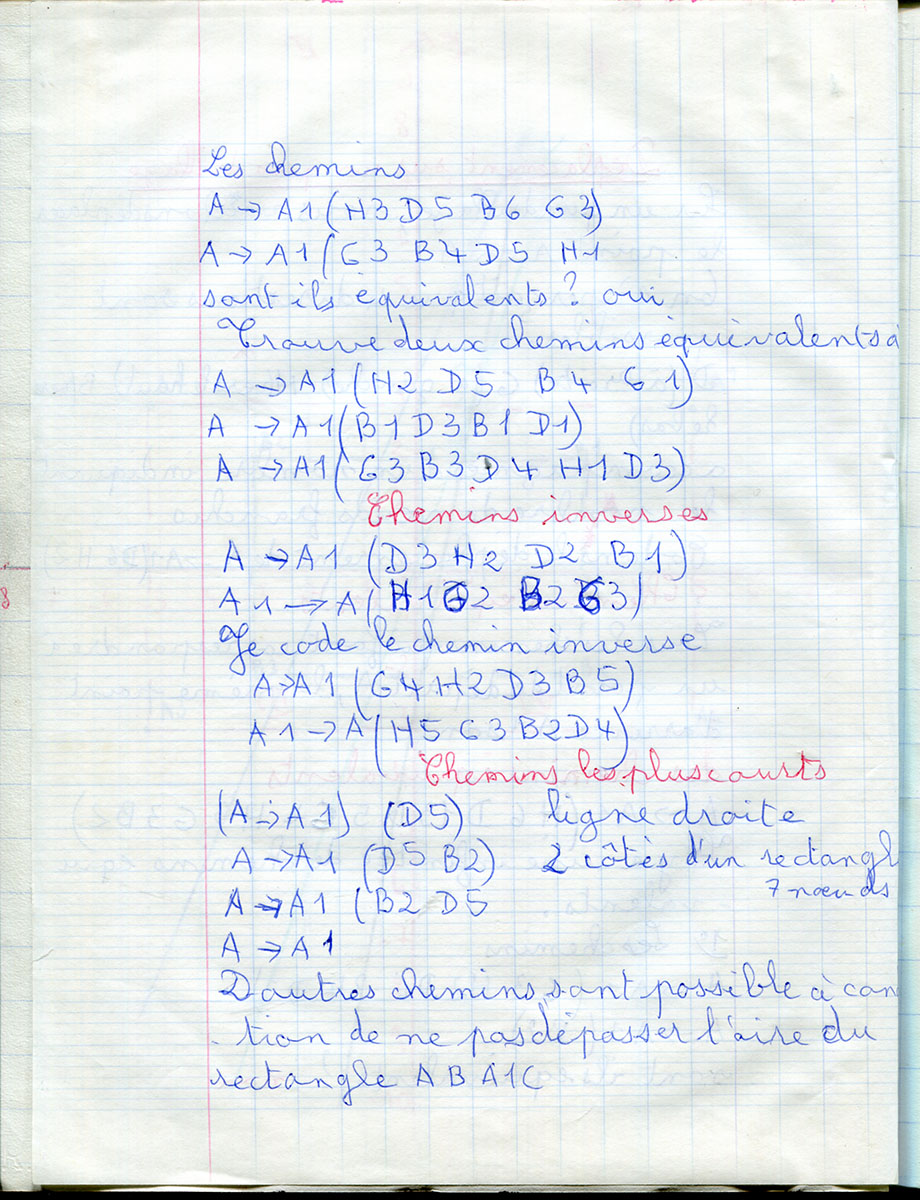 Les chemins
A → A1 (H3 D5 B6 G3)
A → A1 (G3 B4 D5 H1
sont ils équivalents ? oui
Trouve deux chemins équivalents à
A → A1 (H2 D5 B4 G1)
A → A1 (B1 D3 B1 D1)
A → A1 (G3 B3 D4 H1 D3)
Chemins inverses
A → A1 (D3 H2 D2 B1)
A1 → A (H1 G2 B2 G3)
Je code le chemin inverse
A → A1 (G4 H2 D3 B5)
A1 → A (H5 G3 B2 D4)
Chemins les plus courts
(A → A1) (D5) ligne droite
A → A1 (D5 B2) 2 côtés d'un rectangl
7 nœuds
A → A1 (B2 D5
A → A1
D autres chemins sont possible à con
tion de ne pas dépasser l'aire du
rectangle A B A1 C
8